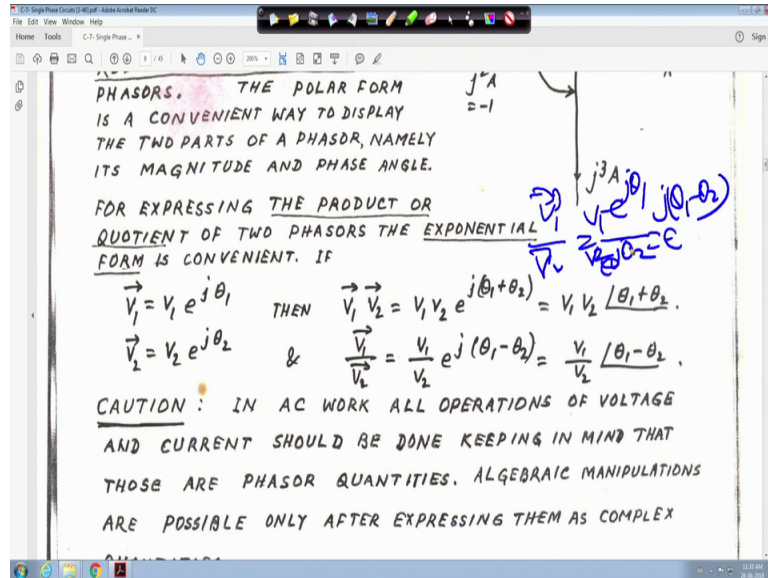 C-7- Single Phase Circuits [2-46].pdf - Adobe Acrobat Reader DC
File Edit View Window Help
Home Tools C-7- Single Phase ... × Sign
8 / 45 200%
PHASORS. THE POLAR FORM
IS A CONVENIENT WAY TO DISPLAY
THE TWO PARTS OF A PHASOR, NAMELY
ITS MAGNITUDE AND PHASE ANGLE.
j²A
= -1
j³A
FOR EXPRESSING THE PRODUCT OR
QUOTIENT OF TWO PHASORS THE EXPONENTIAL
FORM IS CONVENIENT. IF
V₁ e^jθ₁ j(θ₁-θ₂)
V⃗₁ = V₁ e^jθ₁ THEN V⃗₁ V⃗₂ = V₁ V₂ e^j(θ₁+θ₂) = V₁ V₂ ∠θ₁+θ₂ .
V⃗₂ = V₂ e^jθ₂ & V⃗₁/V⃗₂ = V₁/V₂ e^j(θ₁-θ₂) = V₁/V₂ ∠θ₁-θ₂ .
CAUTION : IN AC WORK ALL OPERATIONS OF VOLTAGE
AND CURRENT SHOULD BE DONE KEEPING IN MIND THAT
THOSE ARE PHASOR QUANTITIES. ALGEBRAIC MANIPULATIONS
ARE POSSIBLE ONLY AFTER EXPRESSING THEM AS COMPLEX
11:35 AM